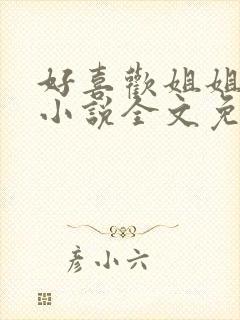 好喜歡姐姐
小說全文免
彥小六